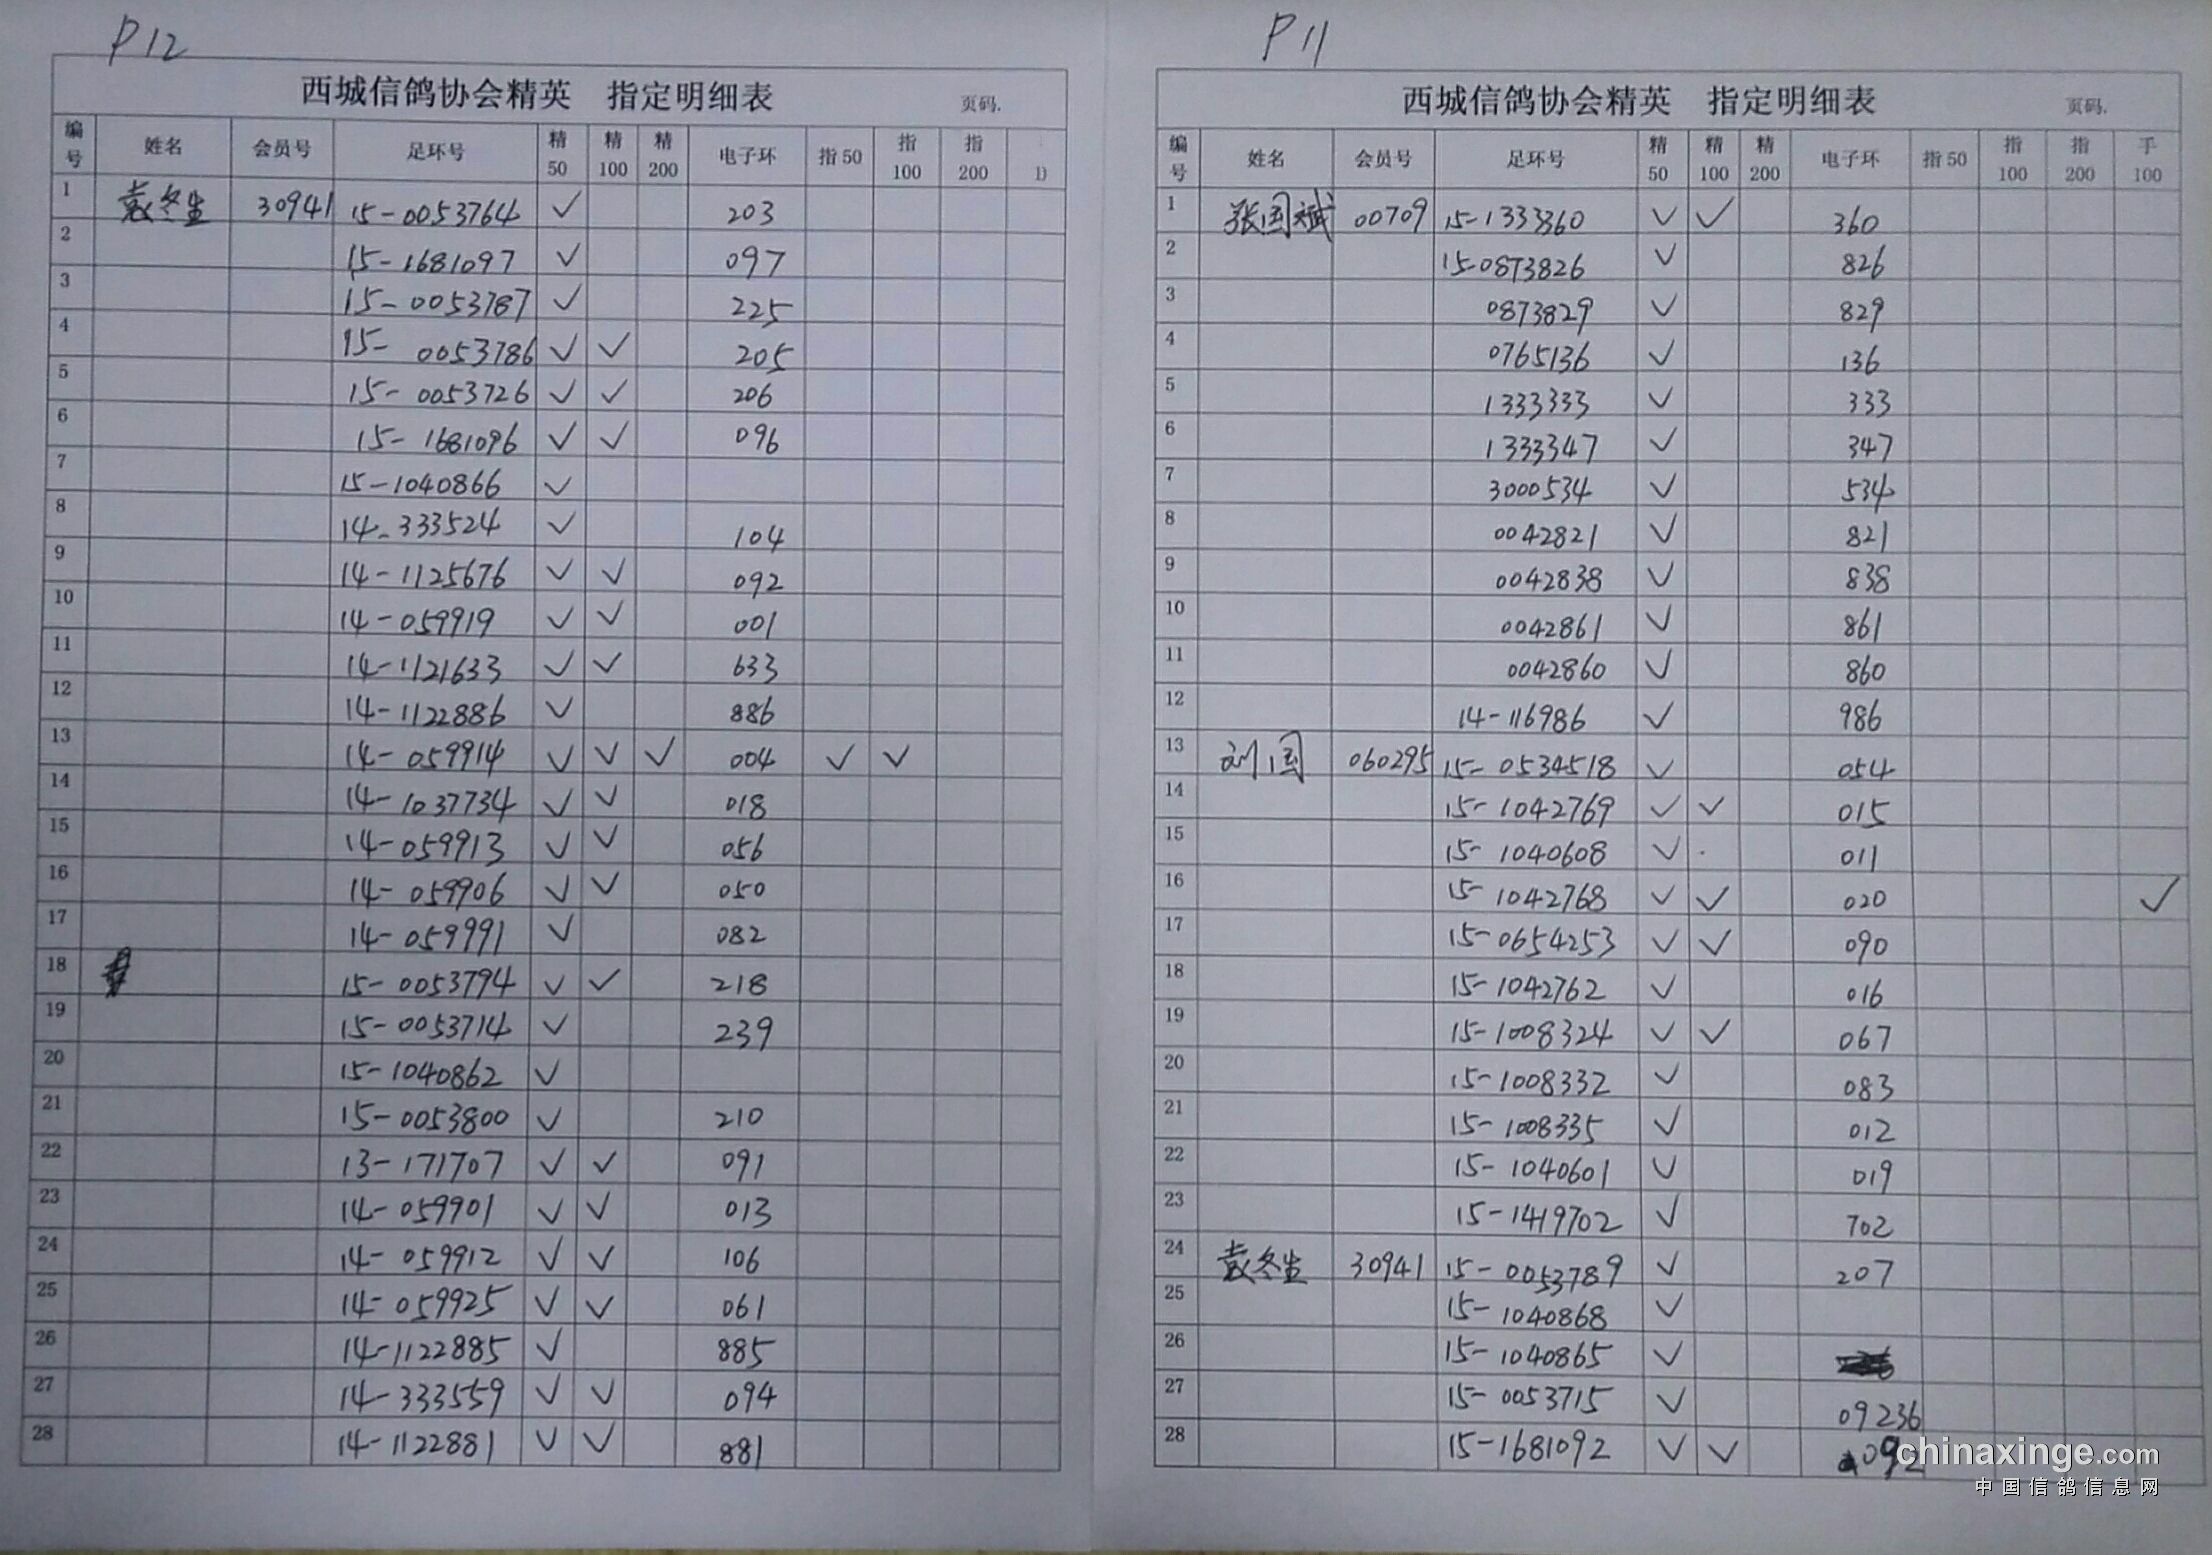 P12
西城信鸽协会精英 指定明细表 页码.
编号 姓名 会员号 足环号 精50 精100 精200 电子环 指50 指100 指200 D
1 袁冬生 30941 15-0053764 ✓ 203
2 15-1681097 ✓ 097
3 15-0053787 ✓ 225
4 15-0053786 ✓ ✓ 205
5 15-0053726 ✓ ✓ 206
6 15-1681096 ✓ ✓ 096
7 15-1040866 ✓
8 14-333524 ✓ 104
9 14-1125676 ✓ ✓ 092
10 14-059919 ✓ ✓ 001
11 14-1121633 ✓ ✓ 633
12 14-1122886 ✓ 886
13 14-059914 ✓ ✓ ✓ 004 ✓ ✓
14 14-1037734 ✓ ✓ 018
15 14-059913 ✓ ✓ 056
16 14-059906 ✓ ✓ 050
17 14-059991 ✓ 082
18 15-0053794 ✓ ✓ 218
19 15-0053714 ✓ 239
20 15-1040862 ✓
21 15-0053800 ✓ 210
22 13-171707 ✓ ✓ 091
23 14-059901 ✓ ✓ 013
24 14-059912 ✓ ✓ 106
25 14-059925 ✓ ✓ 061
26 14-1122885 ✓ 885
27 14-333559 ✓ ✓ 094
28 14-1122881 ✓ ✓ 881
P11
西城信鸽协会精英 指定明细表 页码.
编号 姓名 会员号 足环号 精50 精100 精200 电子环 指50 指100 指200 手100
1 张国斌 00709 15-1333360 ✓ ✓ 360
2 15-0873826 ✓ 826
3 0873829 ✓ 829
4 0765136 ✓ 136
5 1333333 ✓ 333
6 1333347 ✓ 347
7 3000534 ✓ 534
8 0042821 ✓ 821
9 0042838 ✓ 838
10 0042861 ✓ 861
11 0042860 ✓ 860
12 14-116986 ✓ 986
13 刘国 060295 15-0534518 ✓ 054
14 15-1042769 ✓ ✓ 015
15 15-1040608 ✓ 011
16 15-1042768 ✓ ✓ 020 ✓
17 15-0654253 ✓ ✓ 090
18 15-1042762 ✓ 016
19 15-1008324 ✓ ✓ 067
20 15-1008332 ✓ 083
21 15-1008335 ✓ 012
22 15-1040601 ✓ 019
23 15-1419702 ✓ 702
24 袁冬生 30941 15-0053789 ✓ 207
25 15-1040868 ✓
26 15-1040865 ✓
27 15-0053715 ✓ 09236
28 15-1681092 ✓ ✓ 092
chinaxinge.com
中国信鸽信息网